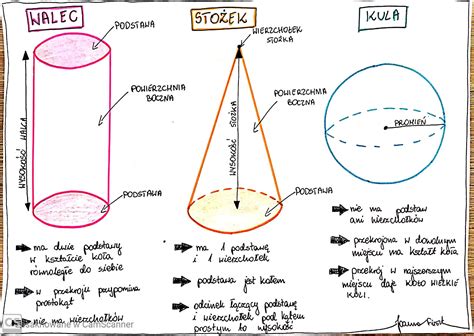 WALEC
PODSTAWA
POWIERZCHNIA
BOCZNA
WYSOKOŚĆ WALCA
PODSTAWA
ma dwie podstawy
w kształcie koła
równoległe do siebie
w przekroju przypomina
prostokąt
nie ma wierzchołków
STOŻEK
WIERZCHOŁEK
STOŻKA
POWIERZCHNIA
BOCZNA
WYSOKOŚĆ STOŻKA
PODSTAWA
ma 1 podstawę
i 1 wierzchołek
podstawa jest kołem
odcinek łączący podstawę
z wierzchołkiem pod kątem
prostym to wysokość
KULA
PROMIEŃ
nie ma podstaw
ani wierzchołków
przekrojona w dowolnym
miejscu ma kształt koła
przekrój w najszerszym
miejscu daje koło wielkie
kuli.
Zeskanowane w CamScanner